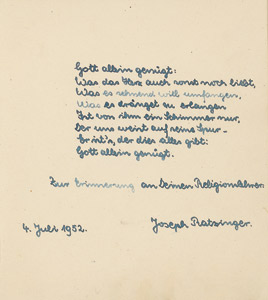 Gott allein genügt:
Was das Herz auch sonst noch liebt,
Was es sehnend will umfangen,
Was es dränget zu erlangen
Ist von ihm ein Schimmer nur,
Der uns weist auf seine Spur –
Er ist's, der dies alles gibt:
Gott allein genügt.
Zur Erinnerung an Deinen Religionslehrer
4. Juli 1952.
Joseph Ratzinger.